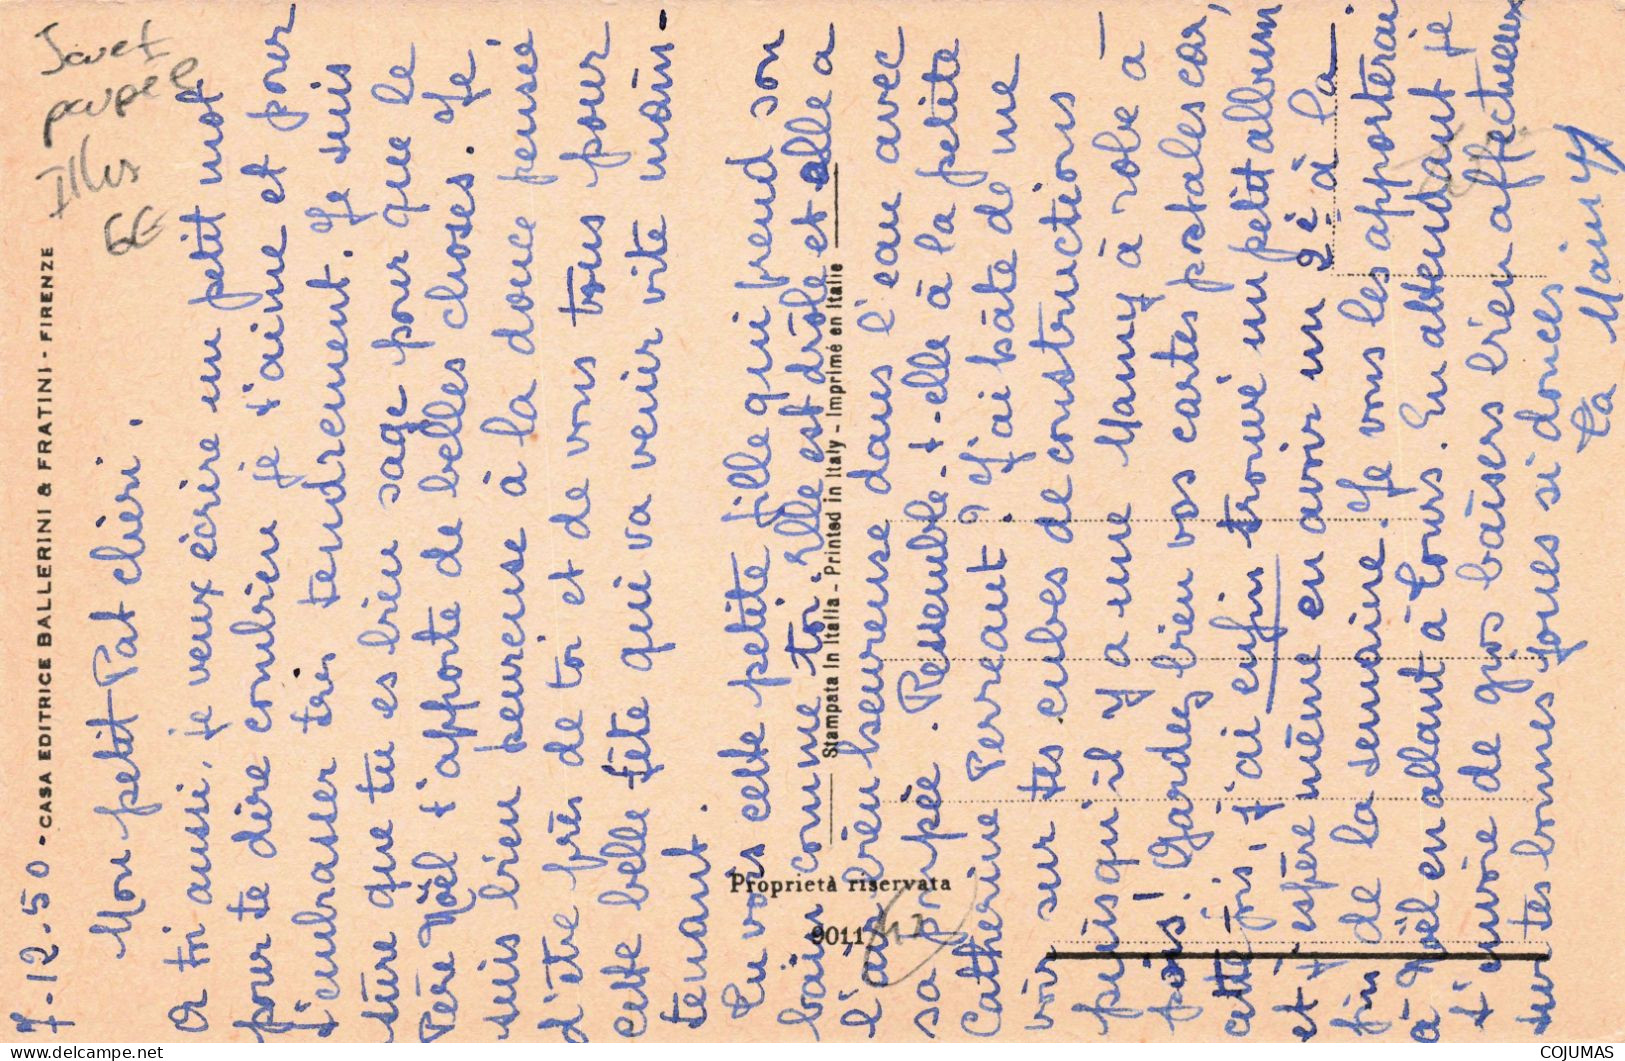 7-12-50
Mon petit Pat chéri.
A toi aussi, je veux écrire un petit mot
pour te dire combien je t'aime et pour
t'embrasser très tendrement. Je suis
sûre que tu es bien sage pour que le
Père Noël t'apporte de belles choses. Je
suis bien heureuse à la douce pensée
d'être près de toi et de vous tous pour
cette belle fête qui va venir vite main-
tenant.
Tu vois cette petite fille qui prend son
bain comme toi. Elle est drôle et elle a
l'air bien heureuse dans l'eau avec
sa poupée. Ressemble-t-elle à la petite
Catherine Perreaut? J'ai hâte de me
voir sur tes cubes de constructions
puisqu'il y a une Mamy à robe à
pois! Gardez bien vos cartes postales car,
cette fois, j'ai enfin trouvé un petit album
et j'espère même en avoir un 2è à la
fin de la semaine. Je vous les apporterai
à Noël en allant à Tours. En attendant je
t'envoie de gros baisers bien affectueux
sur tes bonnes joues si douces
Ta Mamy
CASA EDITRICE BALLERINI & FRATINI - FIRENZE
Stampata in Italia - Printed in Italy - Imprimé en Italie
Proprietà riservata
9011
Jouet
poupée
Illus
6€
delcampe.net
COJUMAS